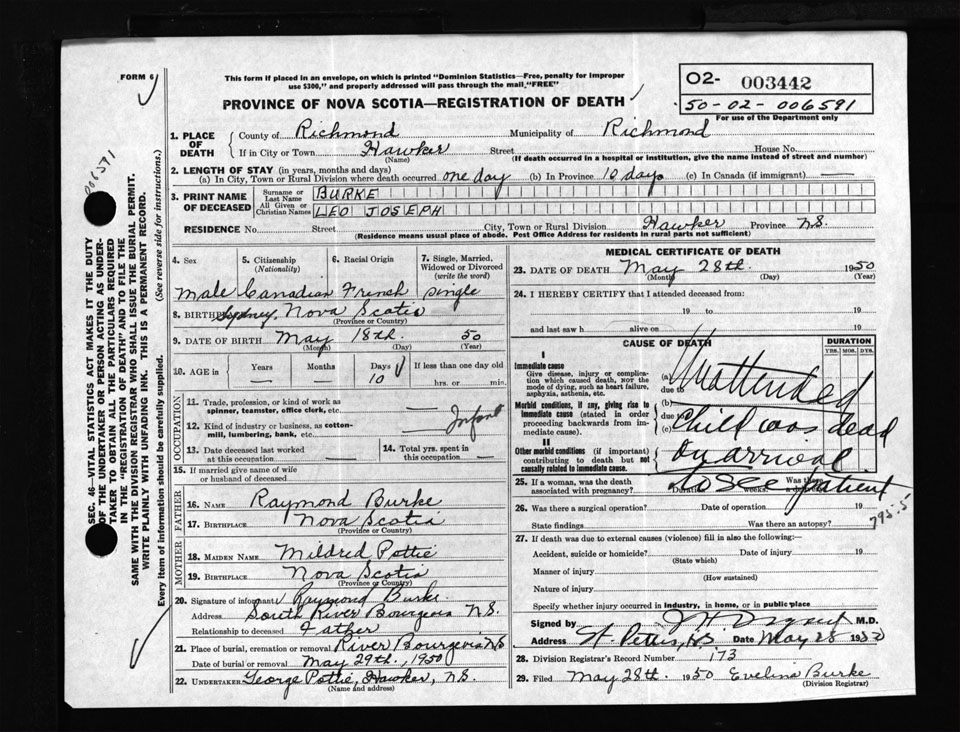 FORM 6
This form if placed in an envelope, on which is printed "Dominion Statistics—Free, penalty for improper
use $300," and properly addressed will pass through the mail, "FREE"
PROVINCE OF NOVA SCOTIA—REGISTRATION OF DEATH
02- 003442
50-02-006591
For use of the Department only
1. PLACE OF DEATH County of Richmond Municipality of Richmond
If in City or Town Hawker Street House No.
(Name) (If death occurred in a hospital or institution, give the name instead of street and number)
2. LENGTH OF STAY (in years, months and days)
(a) In City, Town or Rural Division where death occurred one day (b) In Province 10 days (c) In Canada (if immigrant) —
3. PRINT NAME OF DECEASED Surname or Last Name BURKE
All Given or Christian Names LEO JOSEPH
RESIDENCE No. Street City, Town or Rural Division Hawker Province N.S.
(Residence means usual place of abode. Post Office Address for residents in rural parts not sufficient)
4. Sex 5. Citizenship (Nationality) 6. Racial Origin 7. Single, Married, Widowed or Divorced (write the word)
Male Canadian French single
8. BIRTHPLACE Sydney, Nova Scotia
(Province or Country)
9. DATE OF BIRTH May 18th. 50
(Month) (Day) (Year)
10. AGE in Years Months Days If less than one day old
— — 10 hrs. or min.
OCCUPATION
11. Trade, profession, or kind of work as
spinner, teamster, office clerk, etc. —
12. Kind of industry or business, as cotton-
mill, lumbering, bank, etc. — Infant
13. Date deceased last worked at this occupation — 14. Total yrs. spent in this occupation —
15. If married give name of wife
or husband of deceased
FATHER
16. Name Raymond Burke
17. Birthplace Nova Scotia
(Province or Country)
MOTHER
18. MAIDEN NAME Mildred Pottie
19. BIRTHPLACE Nova Scotia
(Province or Country)
20. Signature of informant Raymond Burke
Address South River Bourgeois N.S.
Relationship to deceased Father
21. Place of burial, cremation or removal River Bourgeois N.S
Date of burial or removal May 29th., 1950
22. UNDERTAKER George Pottie, Hawker, N.S.
(Name and address)
MEDICAL CERTIFICATE OF DEATH
23. DATE OF DEATH May 28th. 1950
(Month) (Day) (Year)
24. I HEREBY CERTIFY that I attended deceased from:
19 to 19
and last saw h alive on 19
CAUSE OF DEATH DURATION
YRS. MOS. DYS.
I
Immediate cause
Give disease, injury or complica-
tion which caused death, not the
mode of dying, such as heart failure,
asphyxia, asthenia, etc.
(a) Unattended
due to
Morbid conditions, if any, giving rise to
immediate cause (stated in order
proceeding backwards from im-
mediate cause).
(b)
due to
(c) Child was dead
II
Other morbid conditions (if important)
contributing to death but not
causally related to immediate cause.
on arrival
to see patient
25. If a woman, was the death
associated with pregnancy? Duration weeks.
26. Was there a surgical operation? Date of operation 19
State findings Was there an autopsy?
795.5
27. If death was due to external causes (violence) fill in also the following:—
Accident, suicide or homicide? Date of injury 19
(State which)
Manner of injury
(How sustained)
Nature of injury
Specify whether injury occurred in industry, in home, or in public place
Signed by M.D.
Address St. Peters, N.S. Date May 28 1950
28. Division Registrar's Record Number 173
29. Filed May 28th. 1950 Evelina Burke
(Division Registrar)
SEC. 46—VITAL STATISTICS ACT MAKES IT THE DUTY
OF THE UNDERTAKER OR PERSON ACTING AS UNDER-
TAKER TO OBTAIN ALL THE PARTICULARS REQUIRED
IN THE "REGISTRATION OF DEATH" AND TO FILE THE
SAME WITH THE DIVISION REGISTRAR WHO SHALL ISSUE THE BURIAL PERMIT.
WRITE PLAINLY WITH UNFADING INK. THIS IS A PERMANENT RECORD.
Every item of information should be carefully supplied. (See reverse side for instructions.)